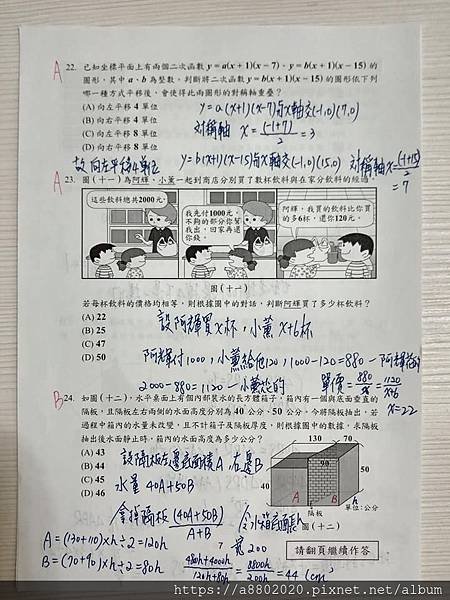 A 22. 已知坐標平面上有兩個二次函數 y=a(x+1)(x-7)、y=b(x+1)(x-15) 的
圖形，其中 a、b 為整數。判斷將二次函數 y=b(x+1)(x-15) 的圖形依下列
哪一種方式平移後，會使得此兩圖形的對稱軸重疊？
(A) 向左平移 4 單位
(B) 向右平移 4 單位
(C) 向左平移 8 單位
(D) 向右平移 8 單位
y=a(x+1)(x-7)與x軸交(-1,0)(7,0)
對稱軸 x=(-1+7)/2=3
故向左平移4單位
y=b(x+1)(x-15)與x軸交(-1,0)(15,0)
對稱軸x=(-1+15)/2
=7
A 23. 圖(十一)為阿輝、小薰一起到商店分別買了數杯飲料與在家分飲料的經過。
這些飲料總共2000元。
我先付1000元，
不夠的部分你幫
我出，回家再還
你錢。
阿輝，我買的飲料比你買
的多6杯，還你120元。
圖(十一)
若每杯飲料的價格均相等，則根據圖中的對話，判斷阿輝買了多少杯飲料？
(A) 22
(B) 25
(C) 47
(D) 50
設阿輝買x杯，小薰x+6杯
阿輝付1000，小薰給他120，1000-120=880－阿輝花的
2000-880=1120－小薰花的
單價=880/x=1120/x+6
x=22
B 24. 如圖(十二)，水平桌面上有個內部裝水的長方體箱子，箱內有一個與底面垂直的
隔板，且隔板左右兩側的水面高度分別為 40 公分、50 公分。今將隔板抽出，若
過程中箱內的水量未改變，且不計箱子及隔板厚度，則根據圖中的數據，求隔板
抽出後水面靜止時，箱內的水面高度為多少公分？
(A) 43
(B) 44
(C) 45
(D) 46
設隔板左邊底面積A 右邊B
水量 40A+50B
拿掉隔板 (40A+50B)/A+B
130 70
90
40
50
A
B
隔板
單位：公分
圖(十二)
A=(130+110)×h÷2=120h
B=(70+90)×h÷2=80h
7
請翻頁繼續作答
4800h+4000h/120h+80h=8800h/200h=44 (cm)
https://a8802020.pixnet.net/album